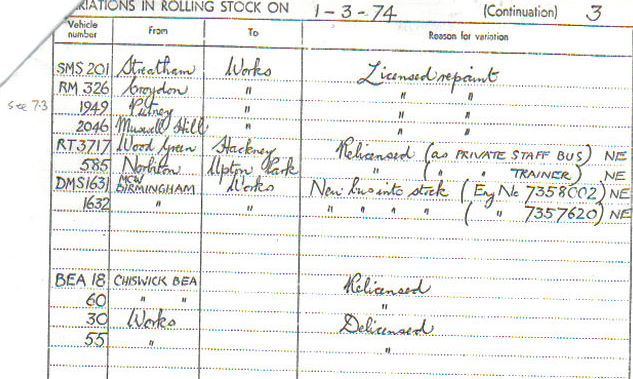 ARIATIONS IN ROLLING STOCK ON 1-3-74 (Continuation) 3
Vehicle number From To Reason for variation
SMS 201 Streatham Works Licensed repaint
RM 326 Croydon " " "
see 7.3 1949 Putney " " "
2046 Muswell Hill " " "
RT 3717 Wood Green Hackney Relicensed (as PRIVATE STAFF BUS) NE
585 Norbiton Upton Park " ( " " TRAINER) NE
DMS1631 MCW BIRMINGHAM Works New bus into stock (Eng No 7358002) NE
1632 " " " " " " ( " 7357620) NE
BEA 18 CHISWICK BEA Relicensed
60 " " "
30 Works Delicensed
55 " "